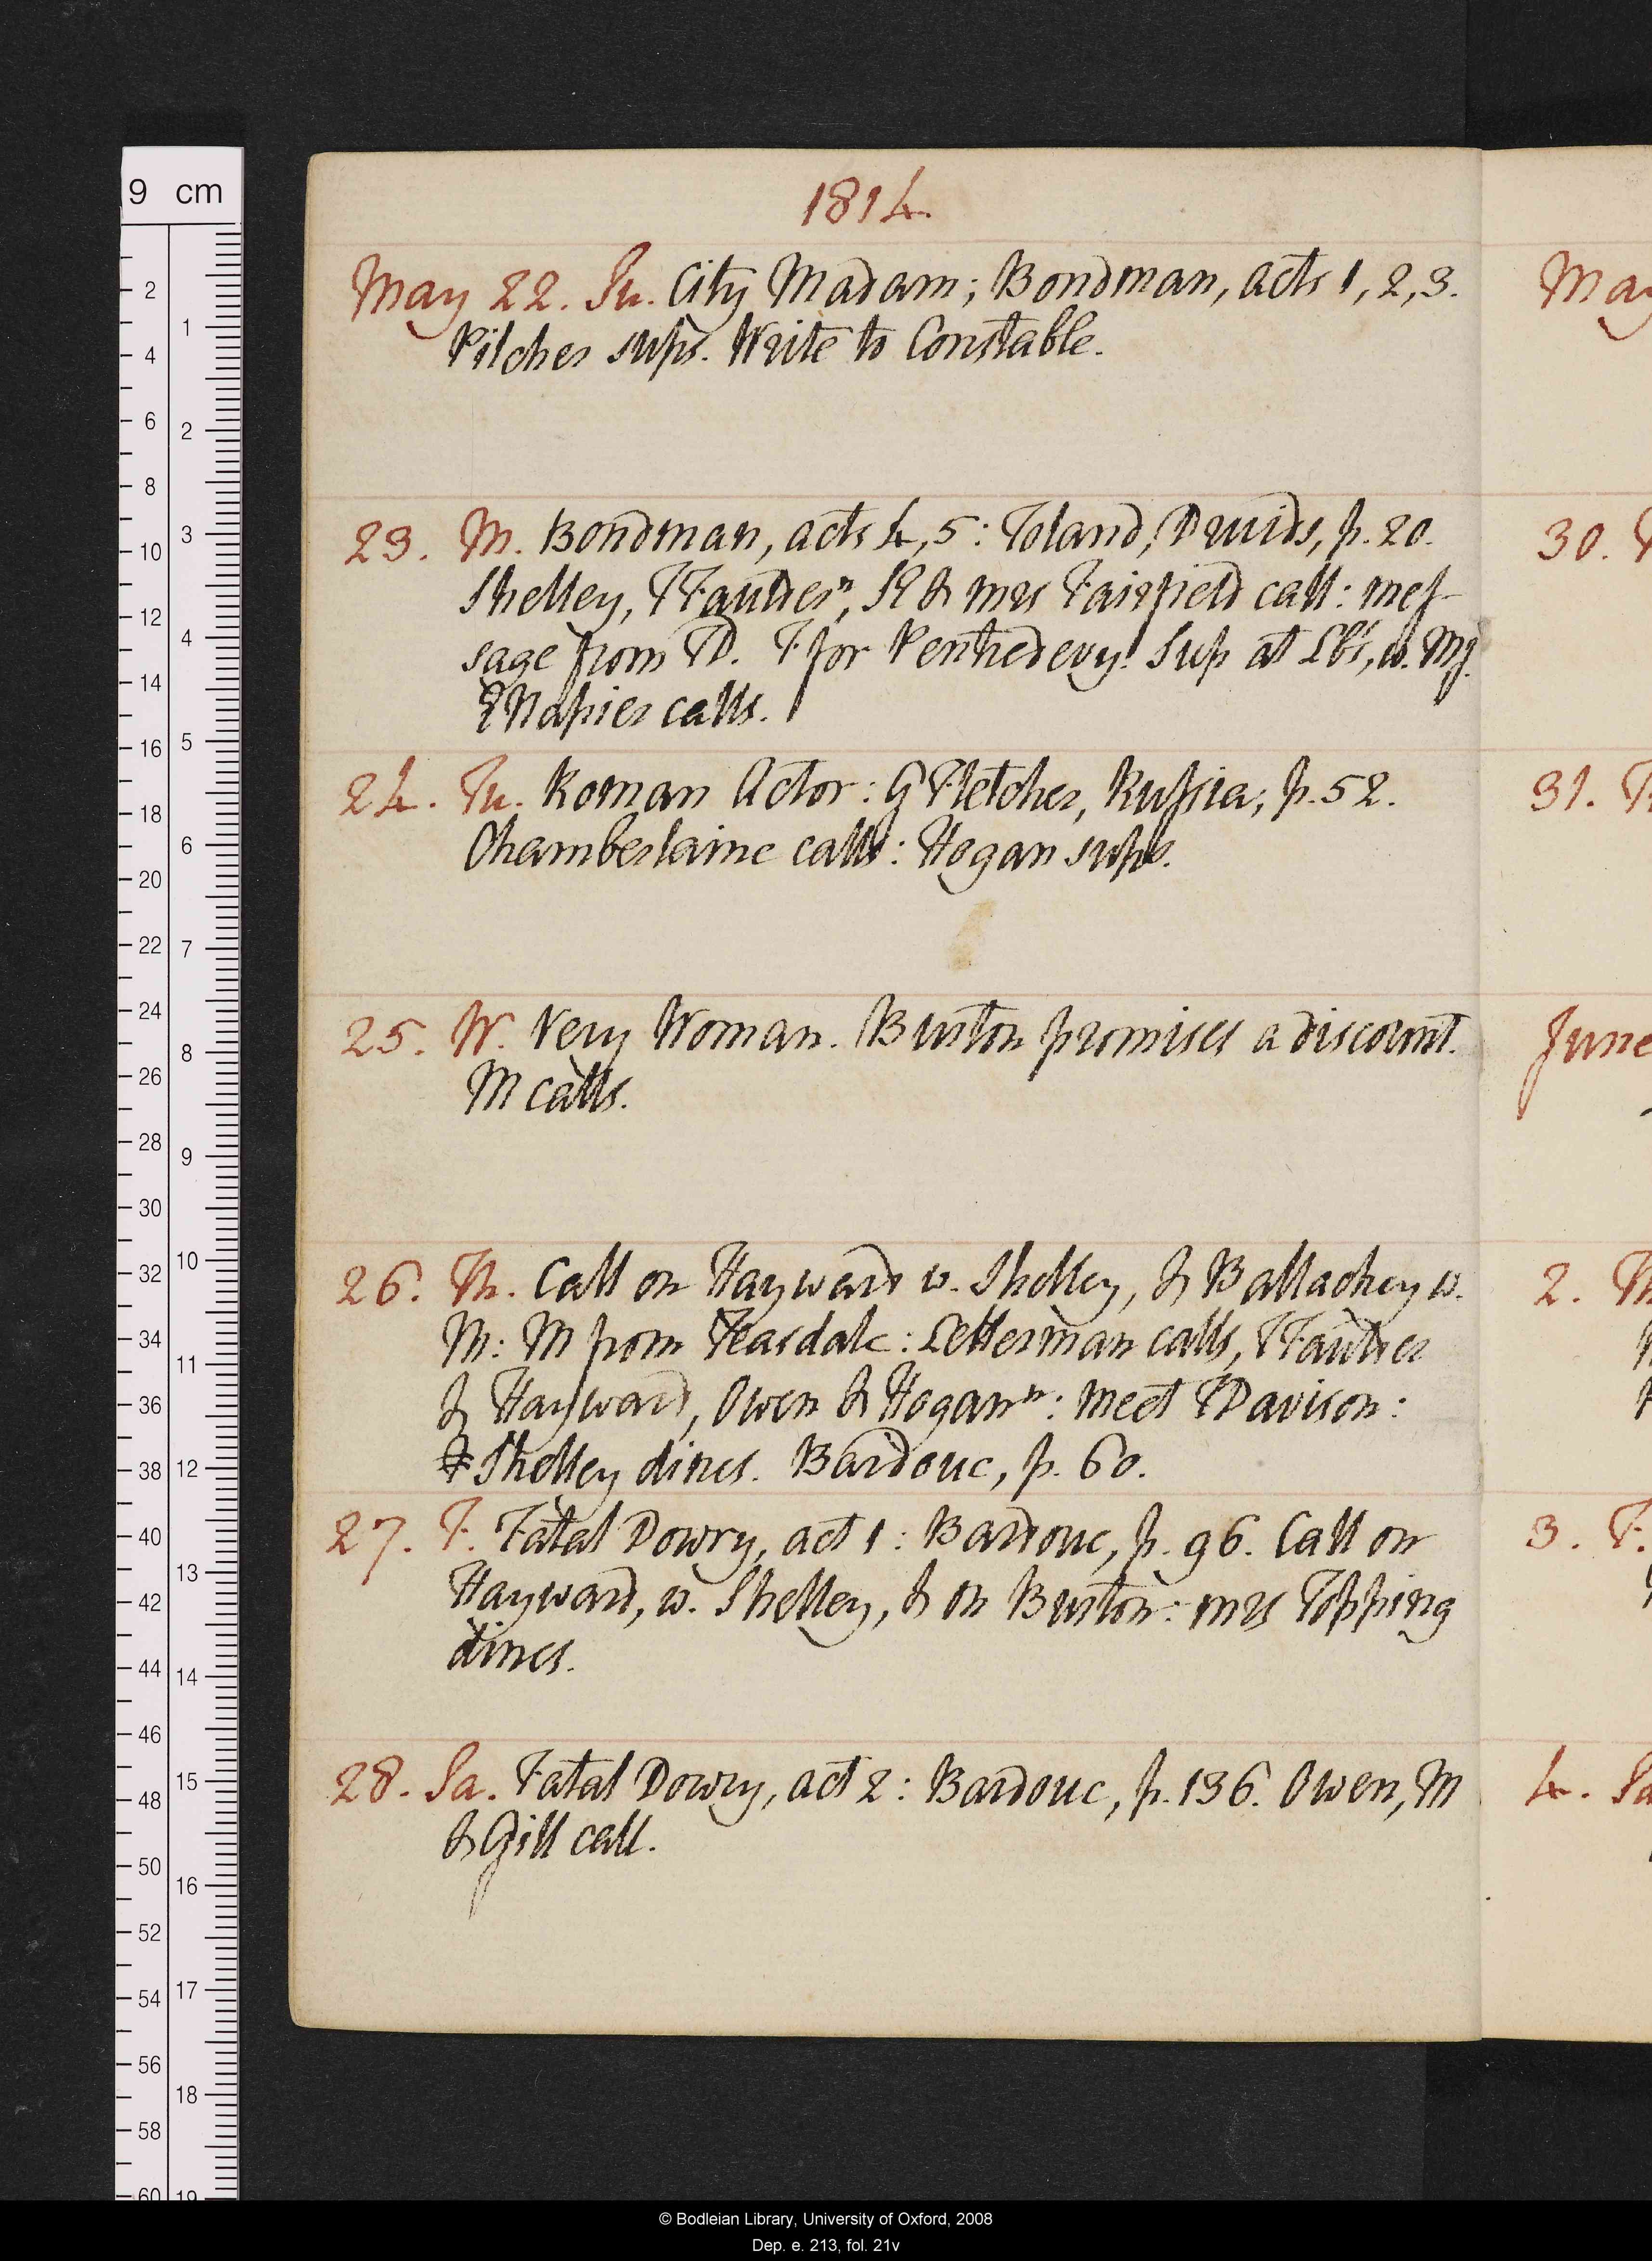 1814.
May 22. Su. City Madam; Bondman, acts 1, 2, 3.
Pilcher sups. Write to Constable.
23. M. Bondman, acts 4, 5: Toland, Druids, p. 20.
Shelley, T Turner ⁿ, R & mrs Fairfield call: mes-
sage from TD. T for Penhedevy! Sup at LB's, w. MJ.
E Napier calls.
24. Tu. Roman Actor: G Fletcher, Russia, p. 52.
Chamberlaine calls: Hogan sups.
25. W. Very Woman. Burton promises a discount.
M calls.
26. Th. Call on Hayward w. Shelley, & Ballachey w.
M: M from Teasdale: Letterman calls, T Turner
& Hayward, Owen & Hogan ⁿ: meet T Davison:
Shelley dines. Bardouc, p. 60.
27. F. Fatal Dowry, act 1: Bardouc, p. 96. Call on
Hayward, w. Shelley, & on Burton: mrs Topping
dines.
28. Sa. Fatal Dowry, act 2: Bardouc, p. 136. Owen, M
& Gill call.
May
30.
31. T
June
2. Th
3. F.
4. Sa
9 cm
2
4
6
8
10
12
14
16
18
20
22
24
26
28
30
32
34
36
38
40
42
44
46
48
50
52
54
56
58
60
1
2
3
4
5
6
7
8
9
10
11
12
13
14
15
16
17
18
19
© Bodleian Library, University of Oxford, 2008
Dep. e. 213, fol. 21v